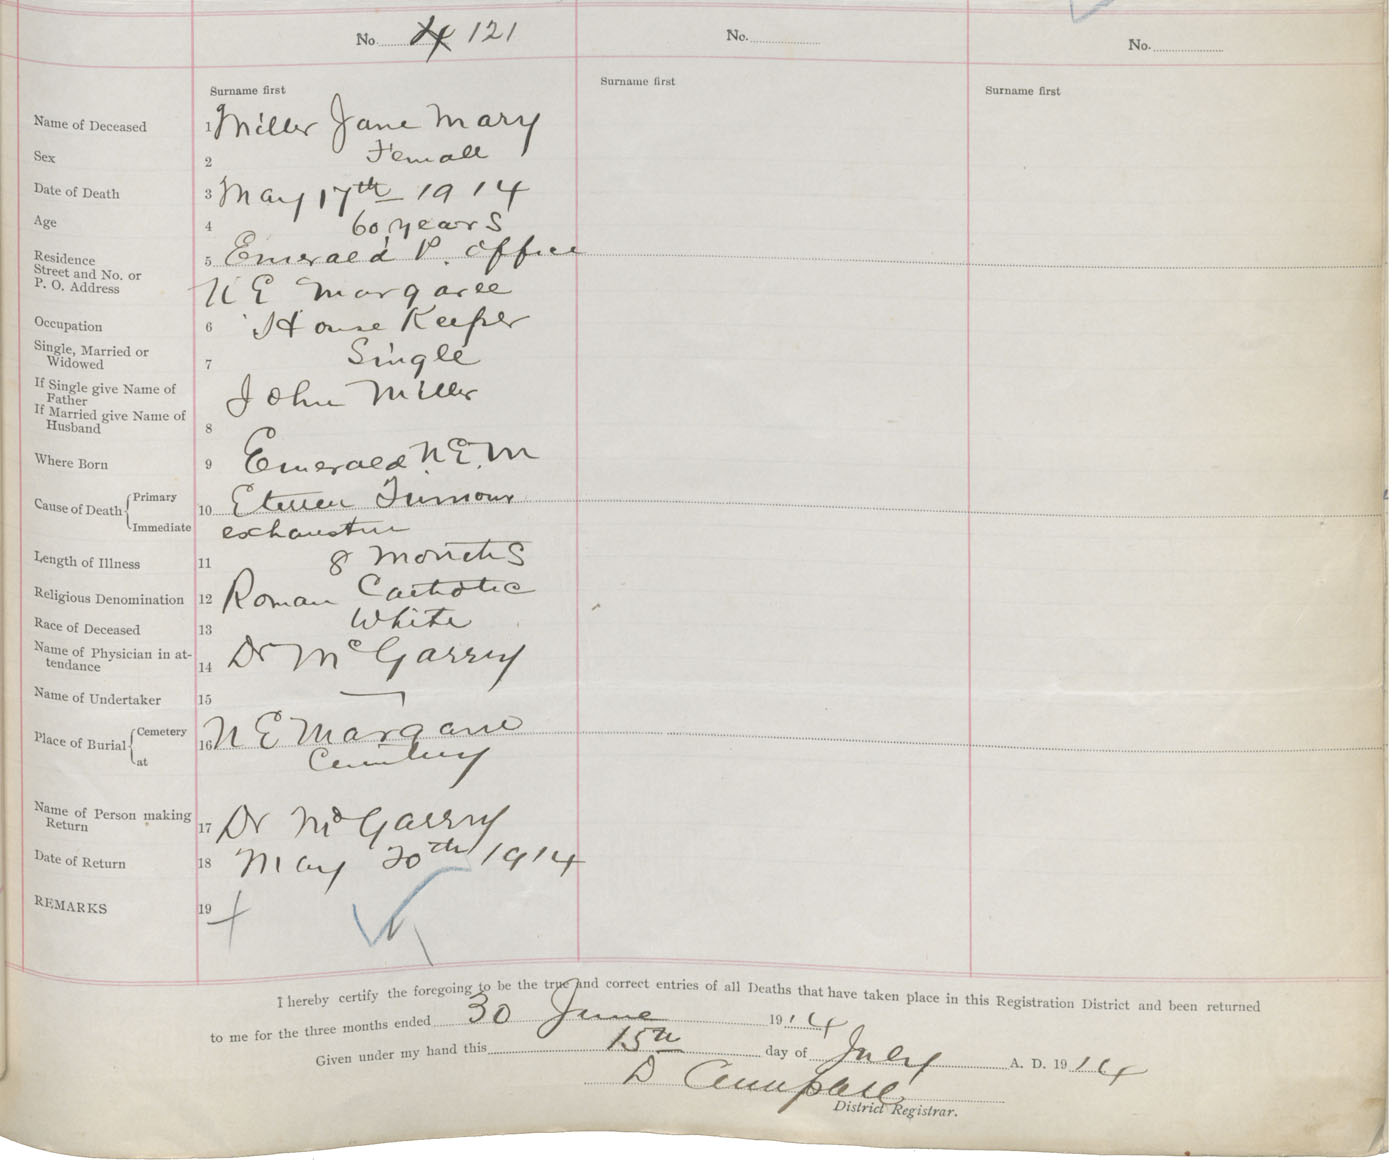 No. 121
No.
No.
Surname first
Surname first
Surname first
Name of Deceased 1 Miller Jane Mary
Sex 2 Female
Date of Death 3 May 17th 1914
Age 4 60 years
Residence
Street and No. or
P. O. Address
5 Emerald P. Office
N E Margaree
Occupation 6 House Keeper
Single, Married or
Widowed
7 Single
If Single give Name of
Father
John Miller
If Married give Name of
Husband
8
Where Born 9 Emerald N.E.M
Cause of Death { Primary
Immediate
10 Tumour
exhaustion
Length of Illness 11 8 months
Religious Denomination 12 Roman Catholic
Race of Deceased 13 White
Name of Physician in at-
tendance
14 Dr McGarry
Name of Undertaker 15 —
Place of Burial { Cemetery
at
16 N E Margaree
Cemetery
Name of Person making
Return
17 Dr McGarry
Date of Return 18 May 20th 1914
REMARKS 19
I hereby certify the foregoing to be the true and correct entries of all Deaths that have taken place in this Registration District and been returned
to me for the three months ended 30 June 1914
Given under my hand this 15th day of July A. D. 1914
D Campbell
District Registrar.